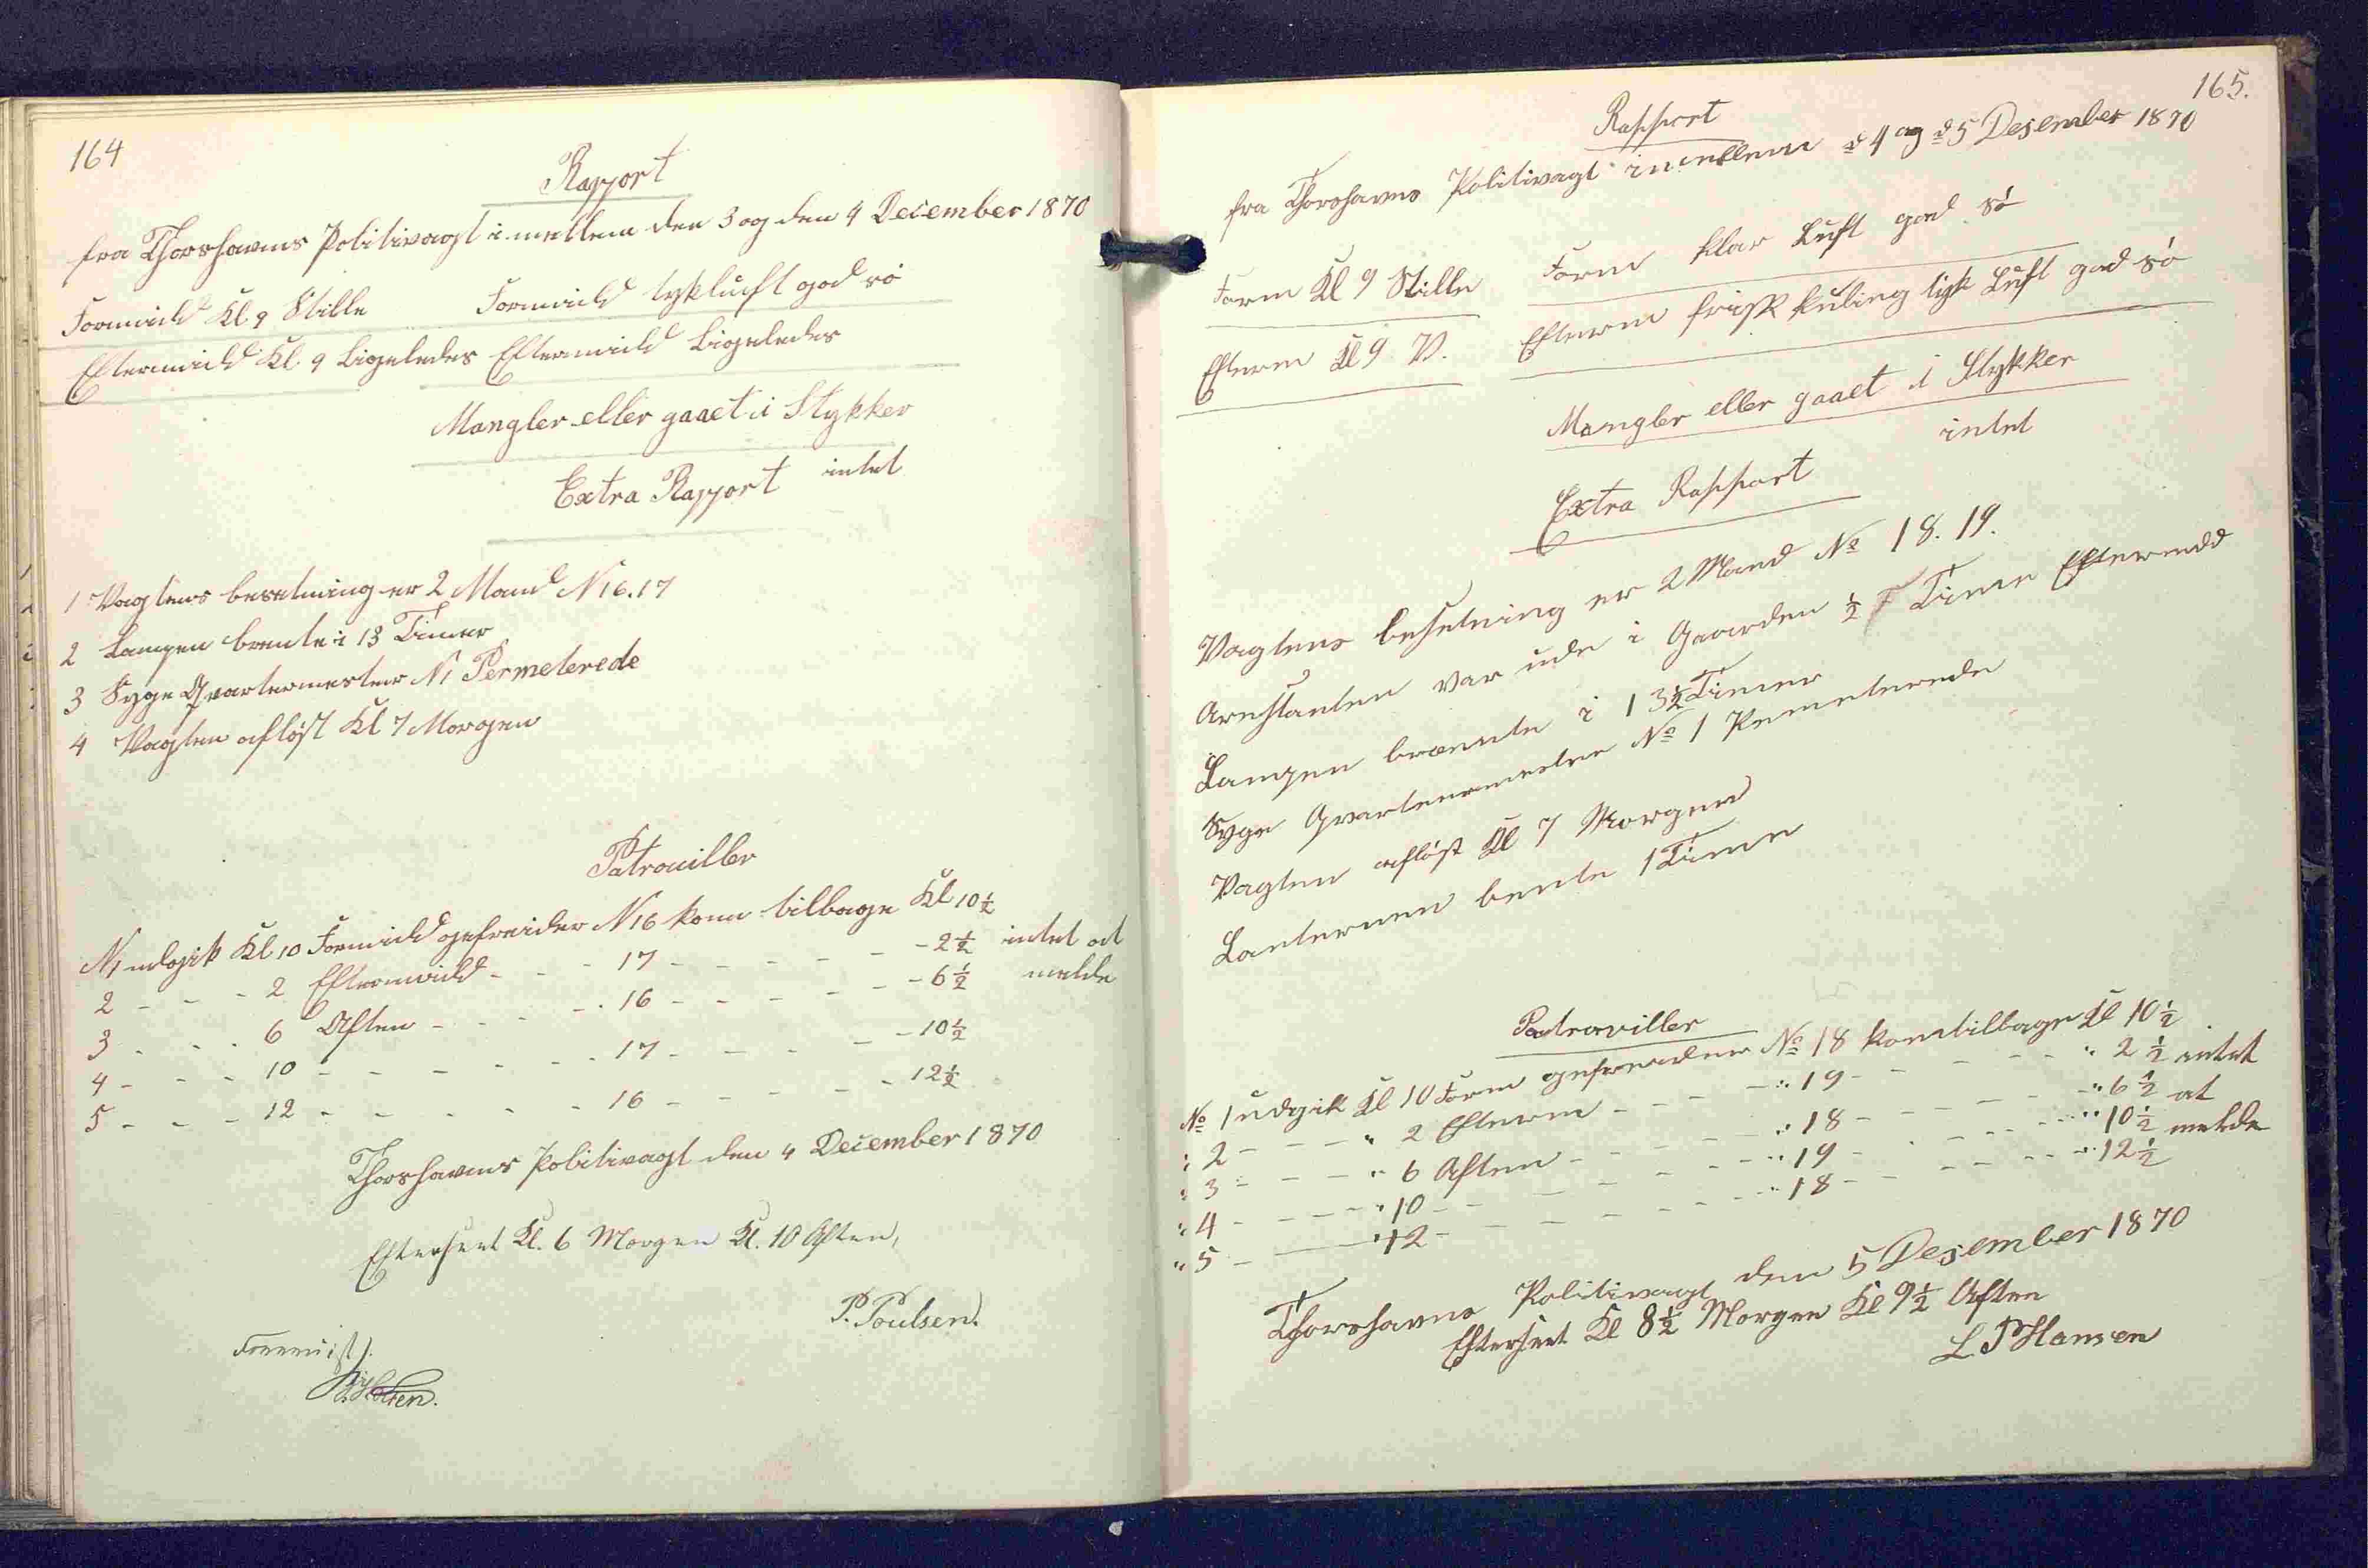 164
Rapport
fra Thorshavns Politivagt imellem den 3 og den 4 December 1870
Formidd Kl 9 Stille Formidd tykluft god sö
Eftermidd Kl. 9 Ligeledes Eftermidd Ligeledes
Mangler eller gaaet i Stykker
intet
Extra Rapport
1 Vagtens besetning er 2 Mand N 16. 17
2 Lampen brente i 13 Timer
3 Syge Qvartermester N 1 Permeterede
4 Vagten aflöst Kl 7 Morgen
Patrouiller
N 1 udgik Kl 10 Formidd gefreider N 16 kom tilbage Kl 10½
2 - - - 2 Eftermidd - - - 17 - - - - - 2½ intet at
3 - - - 6 Aften - - - - 16 - - - - - 6½ melde
4 - - - 10 - - - - - 17 - - - - - 10½
5 - - - 12 - - - - - 16 - - - - - 12½
Thorshavns Politivagt den 4 December 1870
Efterseet Kl. 6 Morgen Kl. 10 Aften,
P. Poulsen.
165.
Rapport
fra Thorshavns Politivagt imellem d 4 og d 5 Desember 1870
Form Kl 9 Stille Form klar Luft god sö
Efterm Kl 9 V. Efterm frisk kuling tyk Luft god sö
Mangler eller gaaet i Stykker
intet
Extra Rapport
Vagtens besetning er 2 Mand No 18. 19.
Arestanten var ude i Gaarden ½ Time Eftermidd
Lampen brænte i 13½ Timer
Syge Qvartermester No 1 Permeterede
Vagten aflöst Kl 7 Morgen
Lanternen bente 1 Time
Patrouiller
No 1 udgik Kl 10 Form gefreider No 18 kom tilbage Kl 10½
" 2 - - - " 2 Efterm - - - - " 19 - - - - " 2½ intet
" 3 - - - " 6 Aften - - - - " 18 - - - - " 6½ at
" 4 - - - " 10 - - - - - " 19 - - - - " 10½ melde
" 5 - - - " 12 - - - - - " 18 - - - - " 12½
Thorshavns Politivagt den 5 Desember 1870
Efterseet Kl 8½ Morgen Kl 9½ Aften
L P Hansen